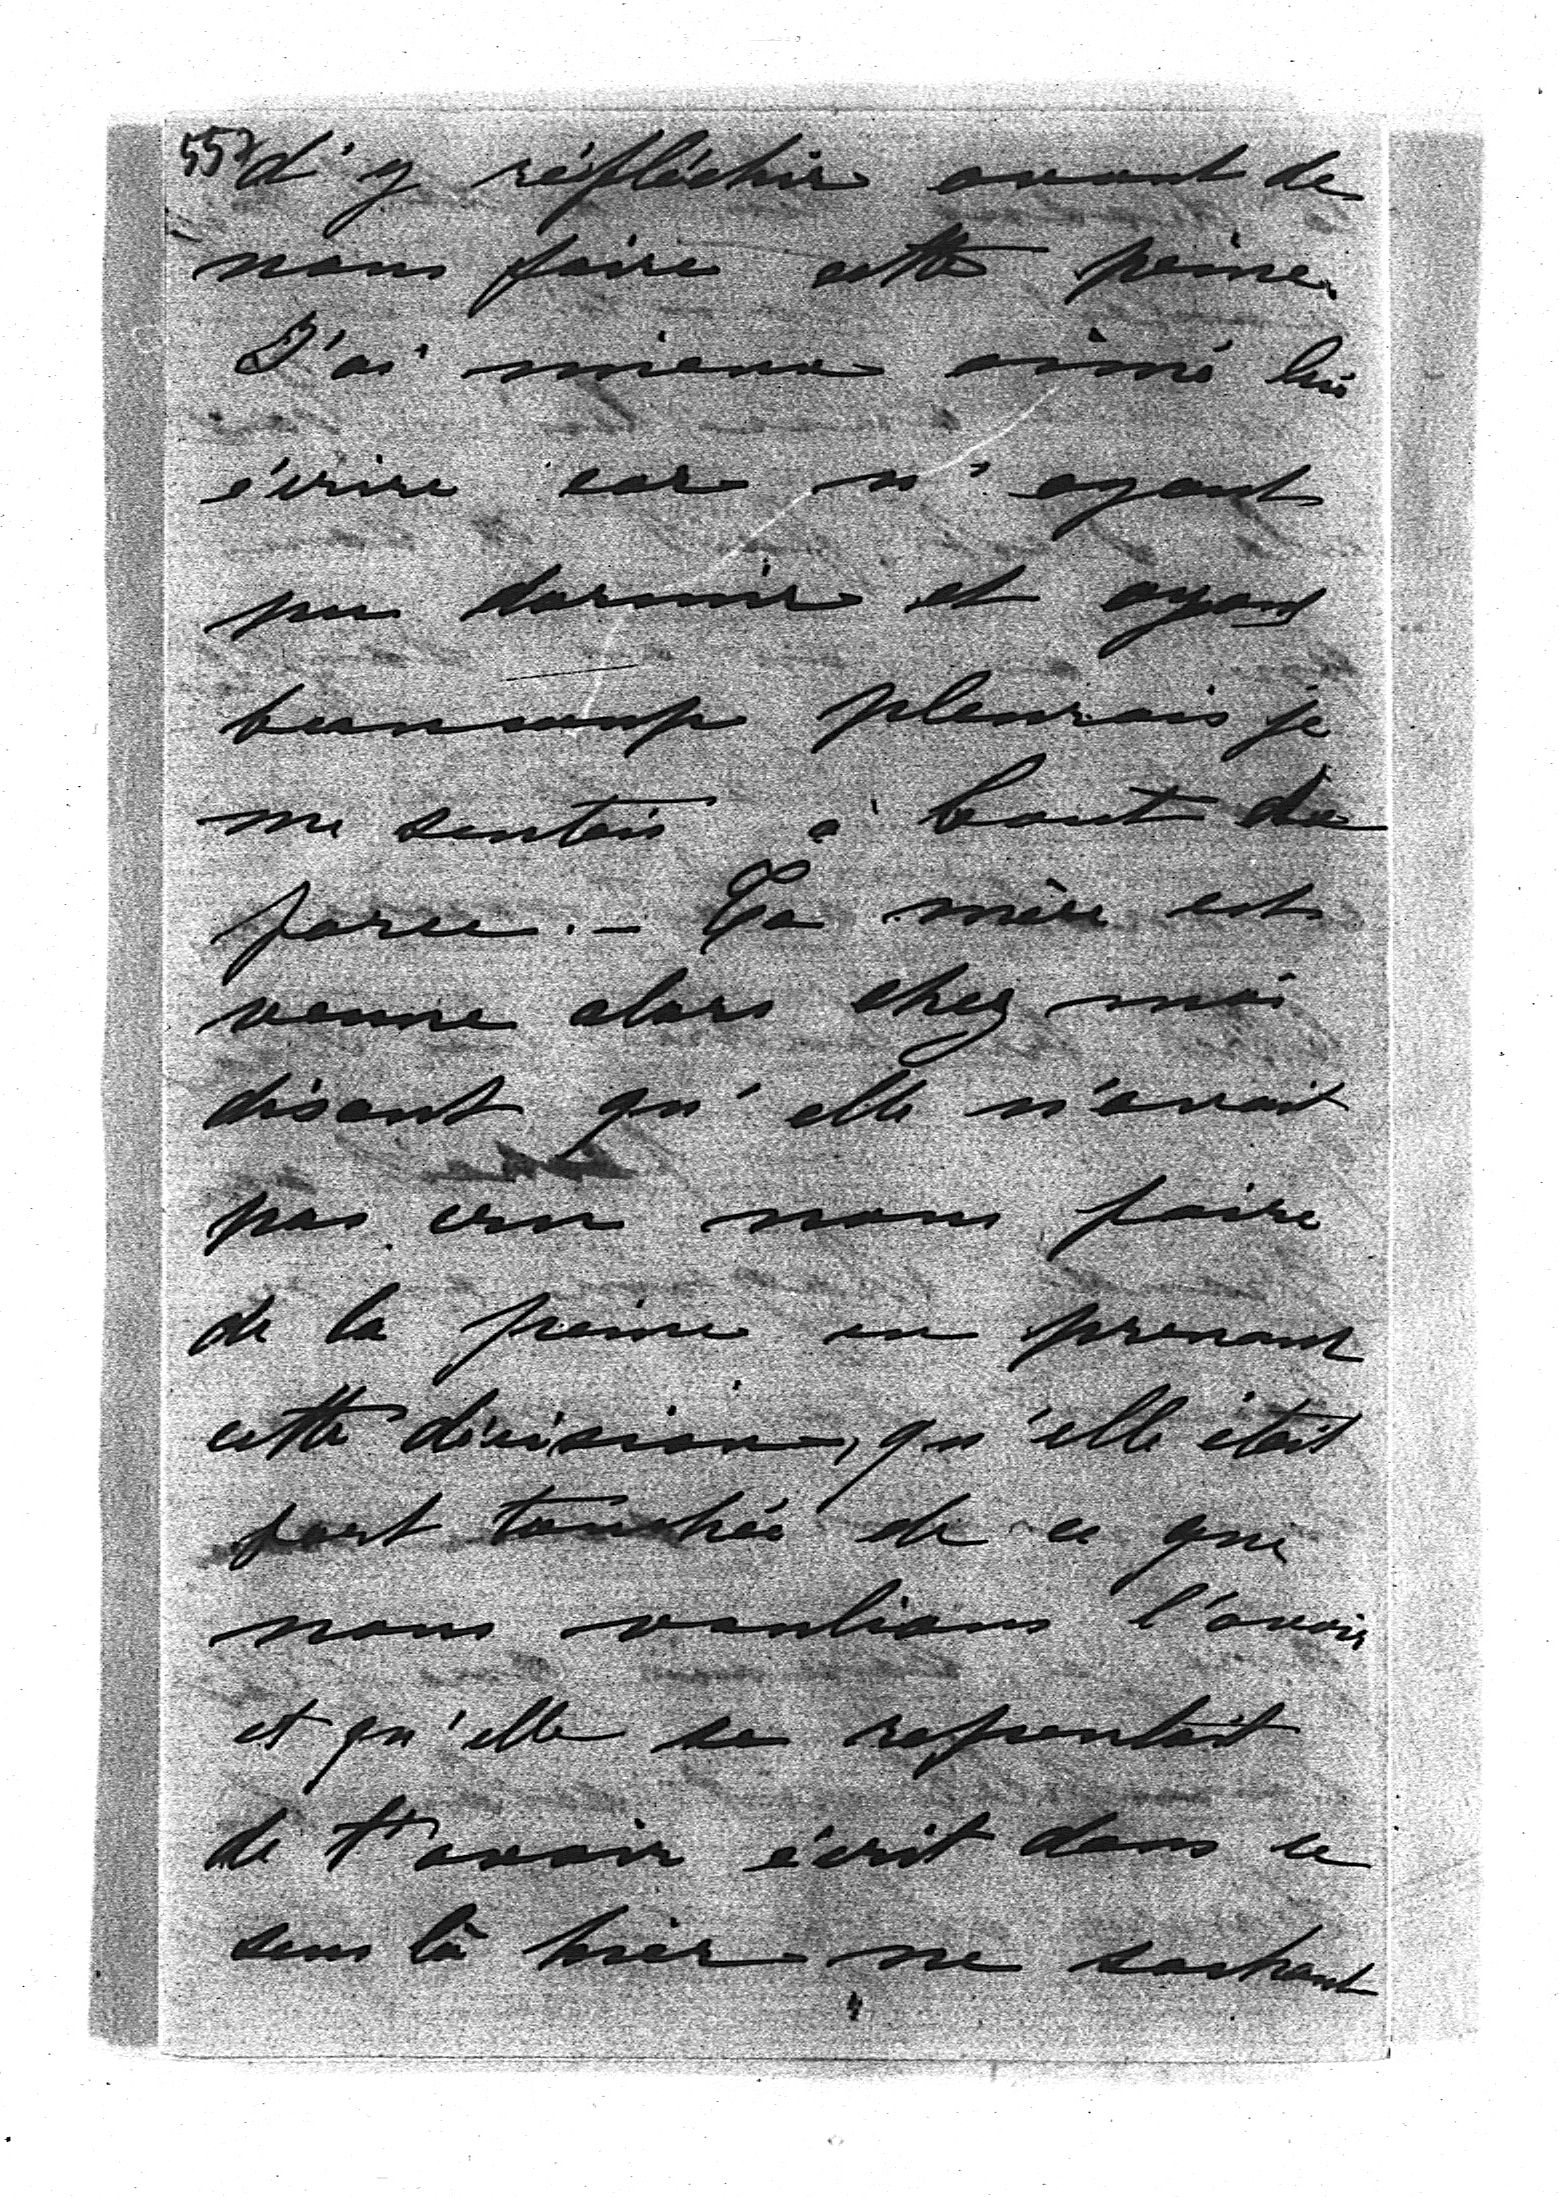 557 d'y réfléchir avant de
nous faire cette peine.
J'ai mieux aimé lui
écrire car n'ayant
pu dormir et ayant
beaucoup pleurais je
me sentais à bout de
force. - Ta mère est
venue alors chez moi
disant qu'elle n'avait
pas cru nous faire
de la peine en prenant
cette décision, qu'elle était
fort touchée de ce que
nous voulions l'avoir
et qu'elle se repentait
de t'avoir écrit dans ce
sens là hier ne sachant